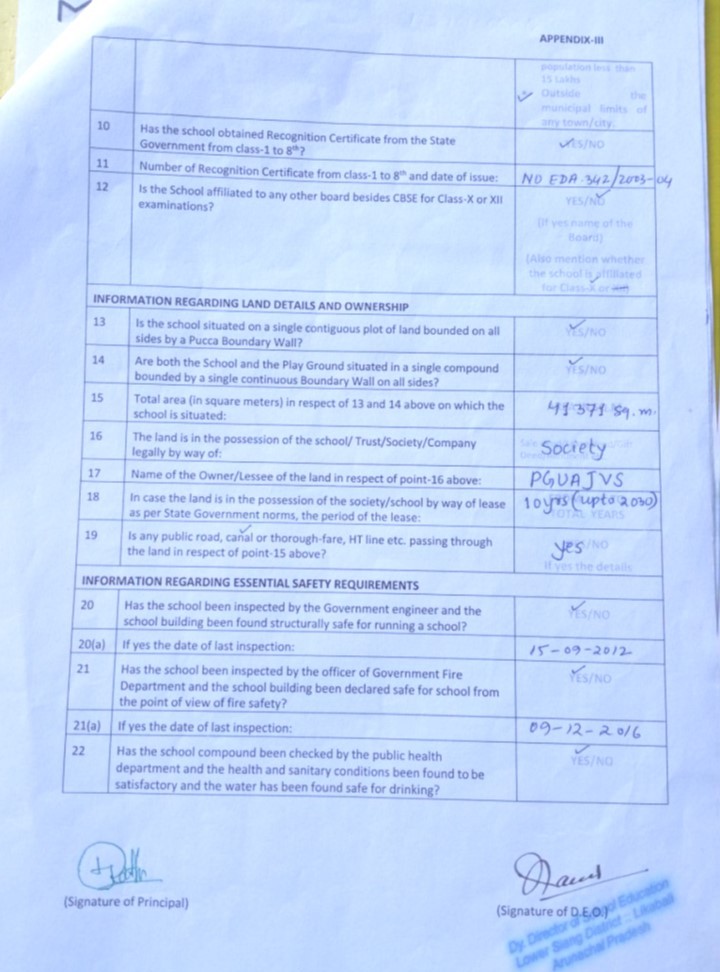 APPENDIX-III
population less than
15 Lakhs
Outside the
municipal limits of
any town/city.
10 Has the school obtained Recognition Certificate from the State
Government from class-1 to 8th?
YES/NO
11 Number of Recognition Certificate from class-1 to 8th and date of issue: NO EDA.342/2003-04
12 Is the School affiliated to any other board besides CBSE for Class-X or XII
examinations?
YES/NO
(If yes name of the
Board)
(Also mention whether
the school is affiliated
for Class-X or
INFORMATION REGARDING LAND DETAILS AND OWNERSHIP
13 Is the school situated on a single contiguous plot of land bounded on all
sides by a Pucca Boundary Wall?
YES/NO
14 Are both the School and the Play Ground situated in a single compound
bounded by a single continuous Boundary Wall on all sides?
YES/NO
15 Total area (in square meters) in respect of 13 and 14 above on which the
school is situated:
41371 Sq.m.
16 The land is in the possession of the school/ Trust/Society/Company
legally by way of:
Society
17 Name of the Owner/Lessee of the land in respect of point-16 above: PGUAJVS
18 In case the land is in the possession of the society/school by way of lease
as per State Government norms, the period of the lease:
10yrs (upto 2030)
TOTAL YEARS
19 Is any public road, canal or thorough-fare, HT line etc. passing through
the land in respect of point-15 above?
yes /NO
If yes the details
INFORMATION REGARDING ESSENTIAL SAFETY REQUIREMENTS
20 Has the school been inspected by the Government engineer and the
school building been found structurally safe for running a school?
YES/NO
20(a) If yes the date of last inspection: 15-09-2012
21 Has the school been inspected by the officer of Government Fire
Department and the school building been declared safe for school from
the point of view of fire safety?
YES/NO
21(a) If yes the date of last inspection: 09-12-2016
22 Has the school compound been checked by the public health
department and the health and sanitary conditions been found to be
satisfactory and the water has been found safe for drinking?
YES/NO
(Signature of Principal)
(Signature of D.E.O.)
Dy. Director of School Education
Lower Siang District :: Likabali
Arunachal Pradesh